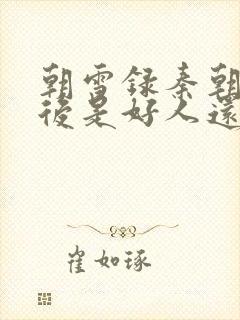 朝雪録秦朝
後是好人還
崔如琢